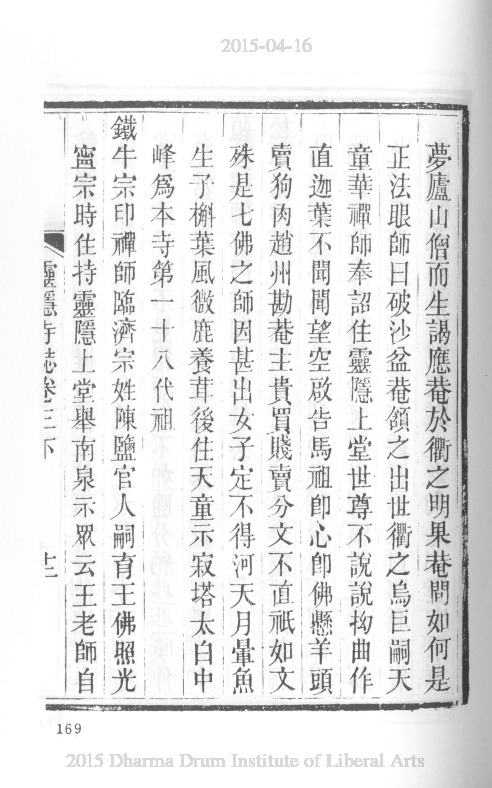 2015-04-16
夢廬山僧而生謁應菴於衢之明果菴問如何是
正法眼師曰破沙盆菴頷之出世衢之烏巨嗣天
童華禪師奉詔住靈隱上堂世尊不說說拘曲作
直迦葉不聞聞望空啟告馬祖卽心卽佛懸羊頭
賣狗肉趙州勘菴主貴買賤賣分文不直祇如文
殊是七佛之師因甚出女子定不得河天月暈魚
生子槲葉風微鹿養茸後住天童示寂塔太白中
峰爲本寺第一十八代祖
鐵牛宗印禪師臨濟宗姓陳鹽官人嗣育王佛照光
寧宗時住持靈隱上堂舉南泉示眾云王老師自
靈隱寺誌卷三下 十二
169
2015 Dharma Drum Institute of Liberal Arts